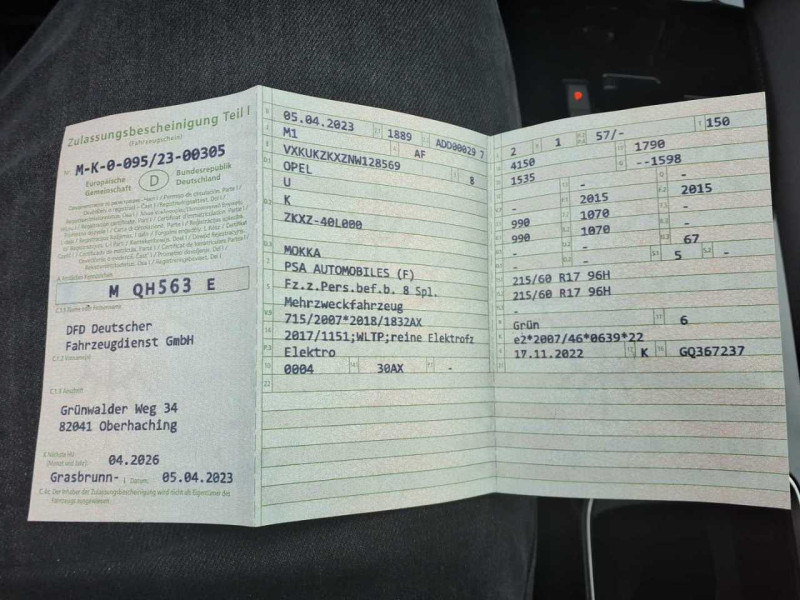 Zulassungsbescheinigung Teil I
(Fahrzeugschein)
M-K-0-095/23-00305
Europäische Gemeinschaft
D
Bundesrepublik Deutschland
M QH563 E
DFD Deutscher
Fahrzeugdienst GmbH
Grünwalder Weg 34
82041 Oberhaching
04.2026
Grasbrunn-
05.04.2023
05.04.2023 1889
M1 AF
VXKUKZKXZNW128569 8
OPEL
U
K
ZKXZ-40L000
MOKKA
PSA AUTOMOBILES (F)
Fz.z.Pers.bef.b. 8 Spl.
Mehrzweckfahrzeug
715/2007*2018/1832AX
2017/1151;WLTP;reine Elektrofz
Elektro
0004 30AX -
2 1 57/- 150
4150 1790
1535 --1598
- - -
- 2015 2015
990 1070 -
990 1070 -
- - 67
- 5 -
215/60 R17 96H
215/60 R17 96H
-
Grün 6
e2*2007/46*0639*22
17.11.2022 K GQ367237